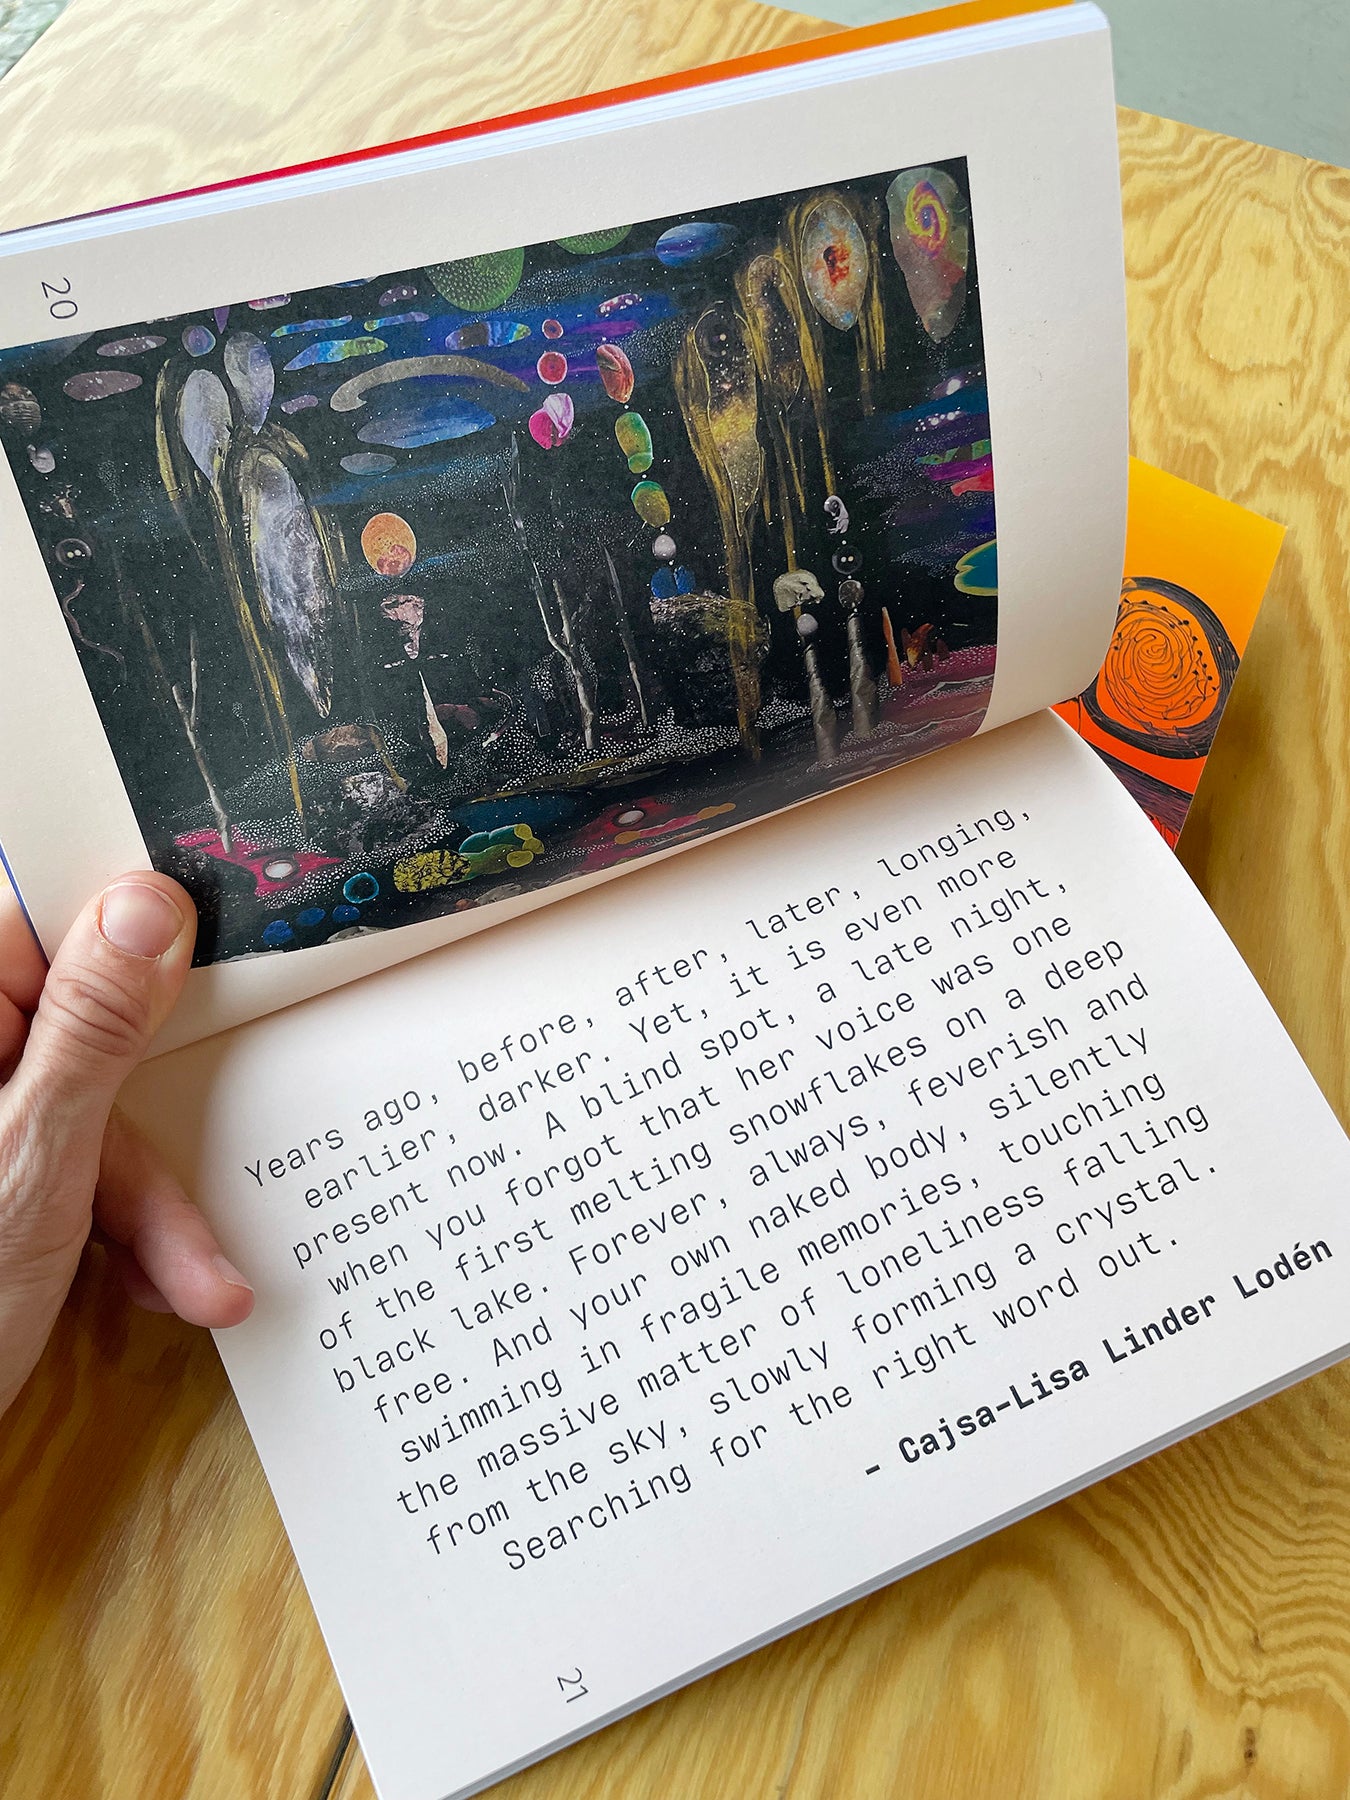 20
Years ago, before, after, later, longing,
earlier, darker. Yet, it is even more
present now. A blind spot, a late night,
when you forgot that her voice was one
of the first melting snowflakes on a deep
black lake. Forever, always, feverish and
free. And your own naked body, silently
swimming in fragile memories, touching
the massive matter of loneliness falling
from the sky, slowly forming a crystal.
Searching for the right word out.
- Cajsa-Lisa Linder Lodén
21